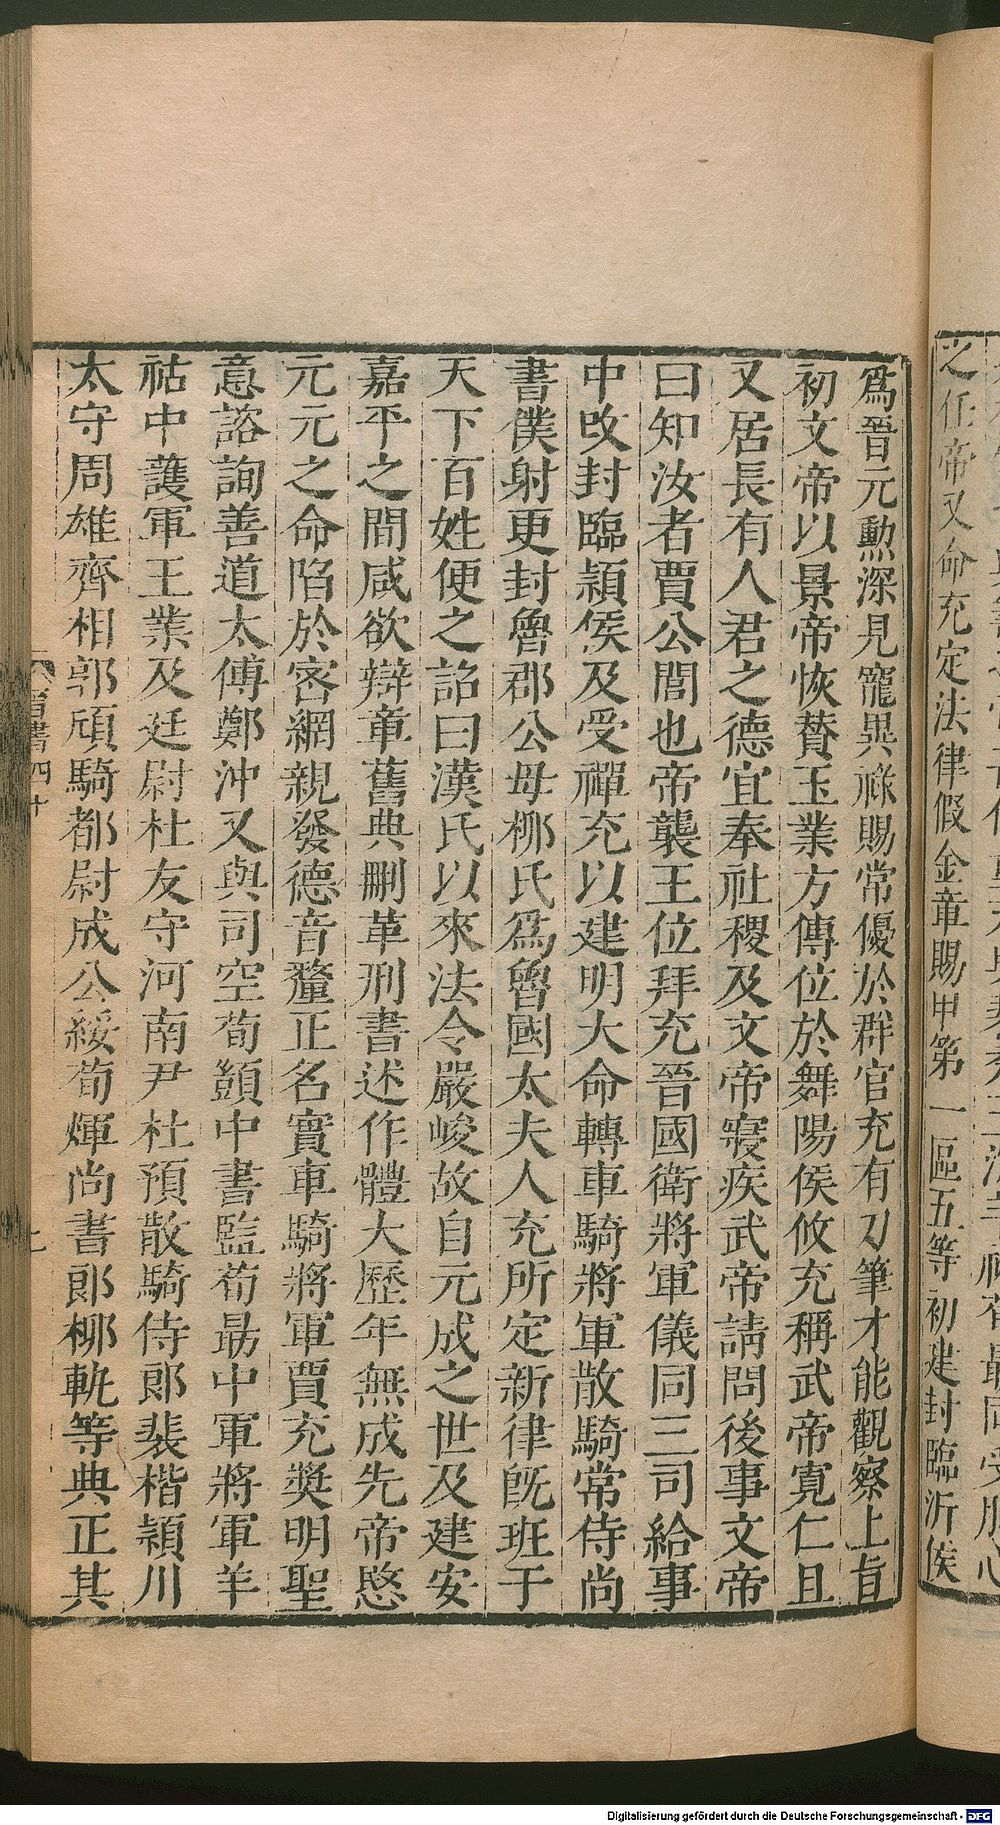 之任帝又命充定法律假金章賜甲第一區五等初建封臨沂侯
爲晉元勲深見寵異祿賜常優於群官充有刀筆才能觀察上旨
初文帝以景帝恢贊王業方傳位於舞陽侯攸充稱武帝寬仁且
又居長有人君之德宜奉社稷及文帝寢疾武帝請問後事文帝
曰知汝者賈公閭也帝襲王位拜充晉國衛將軍儀同三司給事
中改封臨潁侯及受禪充以建明大命轉車騎將軍散騎常侍尚
書僕射更封魯郡公母柳氏爲魯國太夫人充所定新律旣班于
天下百姓便之詔曰漢氏以來法令嚴峻故自元成之世及建安
嘉平之間咸欲辯章舊典刪革刑書述作體大歷年無成先帝愍
元元之命陷於密網親發德音釐正名實車騎將軍賈充奬明聖
意諮詢善道太傅鄭沖又與司空荀顗中書監荀勗中軍將軍羊
祜中護軍王業及廷尉杜友守河南尹杜預散騎侍郎裴楷潁川
太守周雄齊相郭頎騎都尉成公綏荀煇尚書郎柳軌等典正其
晉書四十
Digitalisierung gefördert durch die Deutsche Forschungsgemeinschaft - DFG